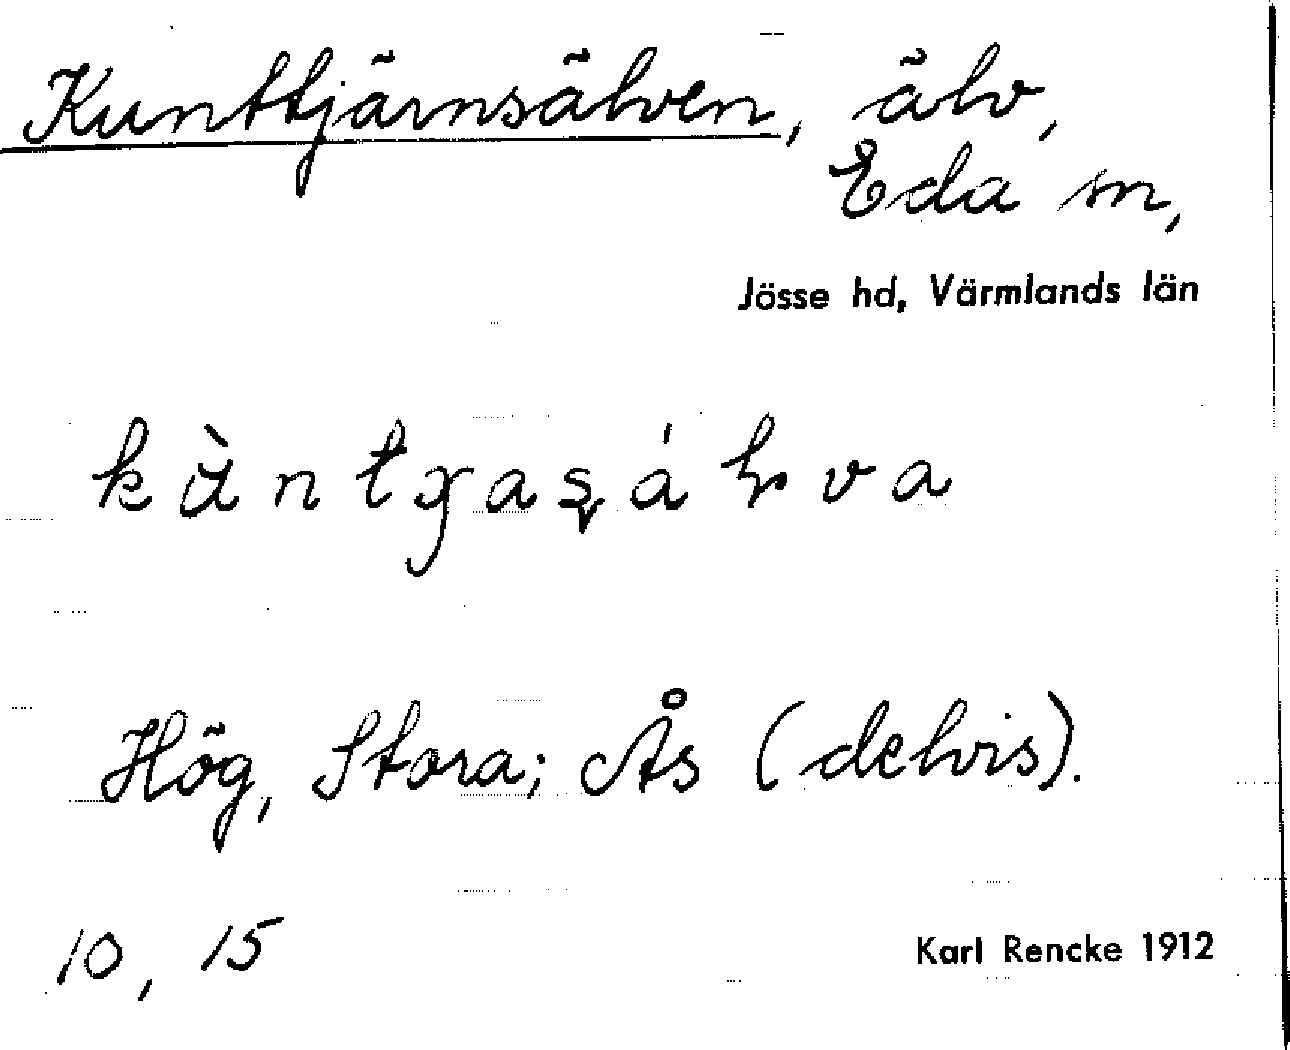 Kunttjärnsälven, älv,
Eda sn,
Jösse hd, Värmlands län
Hög, Stora; Ås (delvis).
10, 15
Karl Rencke 1912